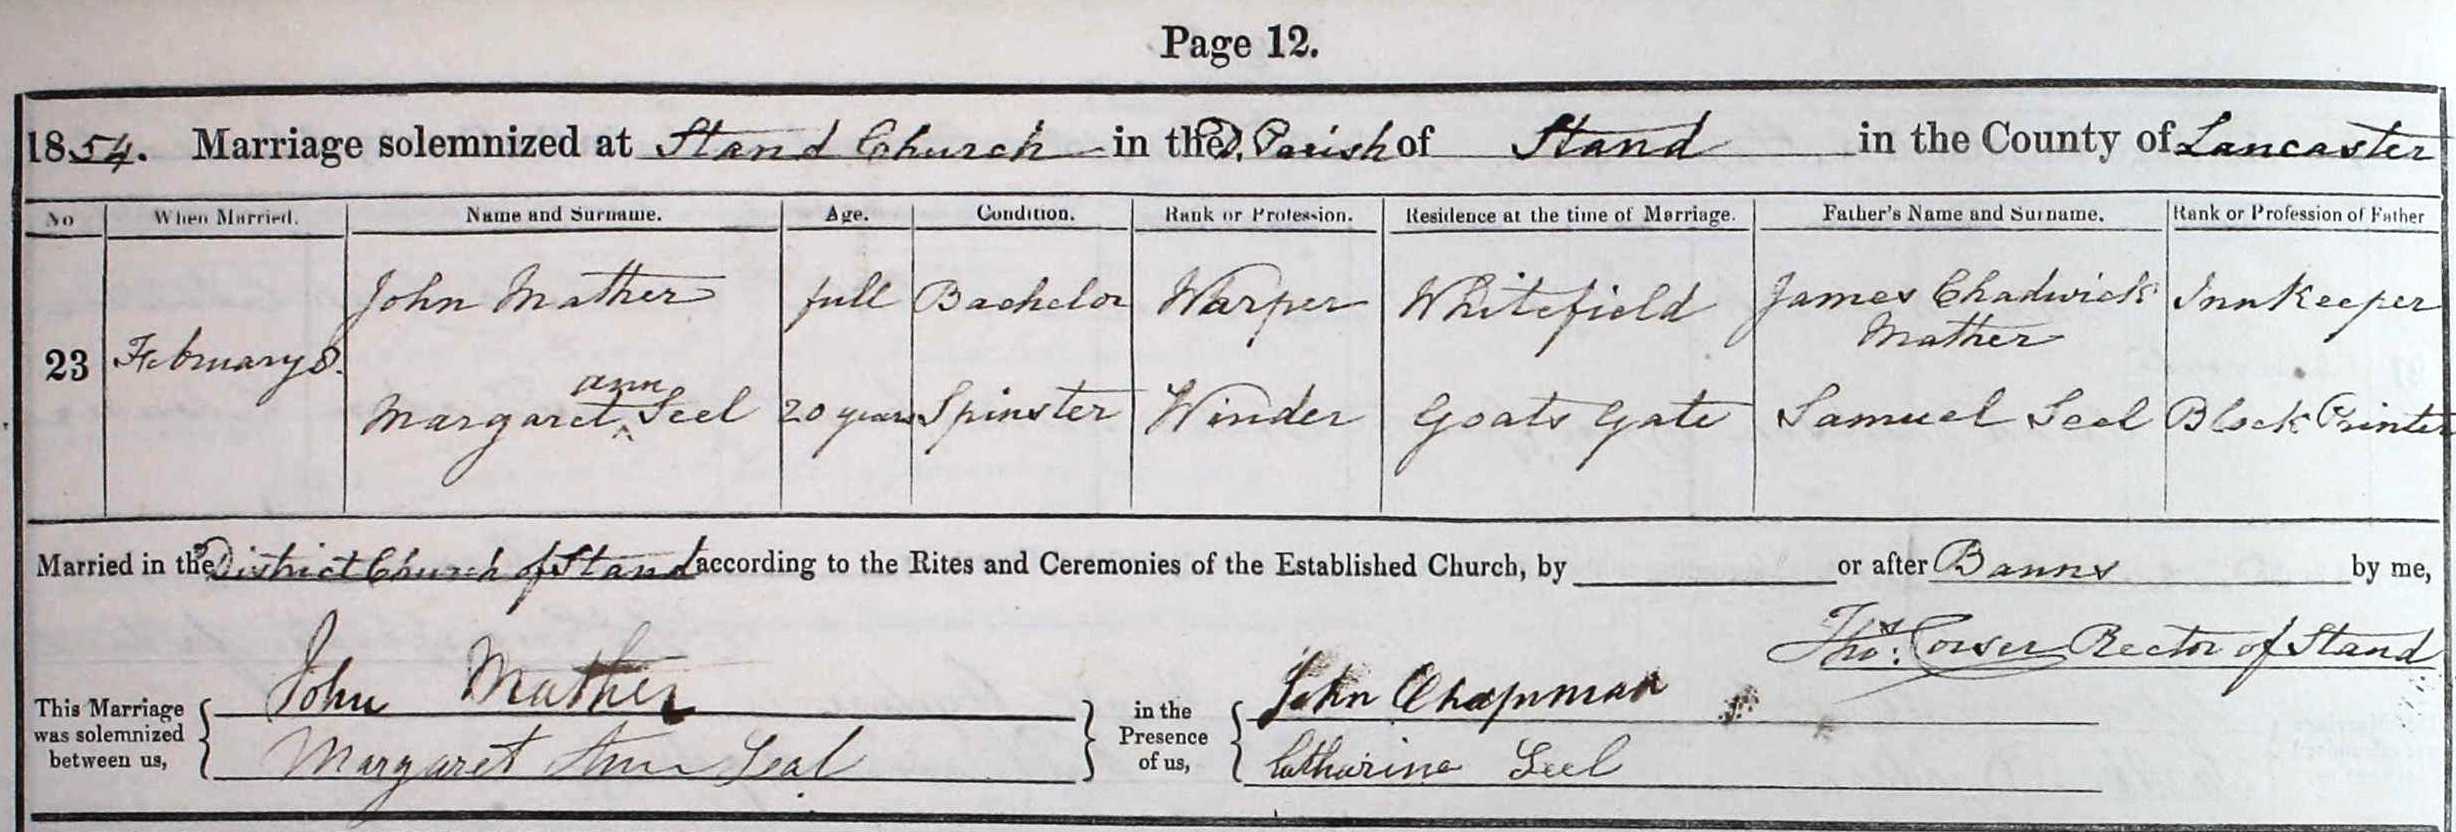 Page 12.
1854. Marriage solemnized at Stand Church in the D. Parish of Stand in the County of Lancaster
No When Married. Name and Surname. Age. Condition. Rank or Profession. Residence at the time of Marriage. Father's Name and Surname. Rank or Profession of Father
John Mather full Bachelor Warper Whitefield James Chadwick Mather Innkeeper
23 February 8.
Margaret ann Seel 20 years Spinster Winder Goats Gate Samuel Seel Block Printer
Married in the District Church of Stand according to the Rites and Ceremonies of the Established Church, by or after Banns by me,
Thos. Corser Rector of Stand
This Marriage was solemnized between us, John Mather in the Presence of us, John Chapman
Margaret Ann Seal Catharine Seel